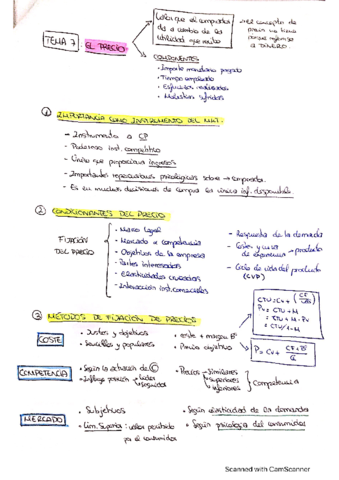 Valor que el comprador
da a cambio de la
utilidad que recibe
→ El concepto de
precio no tiene
porque referirse
a DINERO.
TEMA 7: EL PRECIO
COMPONENTES
• Importe monetario pagado
• Tiempo empleado
• Esfuerzos realizados
• Molestias sufridas
① IMPORTANCIA COMO INSTRUMENTO DEL MKT.
- Instrumento a CP
- Poderoso inst. competitivo
- Único que proporciona ingresos
- Importantes repercusiones psicológicas sobre → comprador.
- Es en muchas decisiones de compra la única inf. disponible
② CONDICIONANTES DEL PRECIO
FIJACIÓN
DEL PRECIO
• Marco legal
• Mercado y competencia
• Objetivos de la empresa
• Partes interesadas
• Elasticidades cruzadas
• Interacción inst. comerciales
- Respuesta de la demanda
- Costes y curva
de experiencia → producto
- Ciclo de vida del producto
(CVP)
③ MÉTODOS DE FIJACIÓN DE PRECIOS
COSTE
• Justos y objetivos
• Sencillos y populares
• coste + margen Bº
• Precio objetivo
COMPETENCIA
• Según la actuación de ©
• Influye posición
• Precios
Similares
Superiores
Inferiores
Competencia
MERCADO
• Subjetivos
• Lim. Superior: valor percibido
por el consumidor
• Según elasticidad de la demanda
• Según psicología del consumidor
Scanned with CamScanner